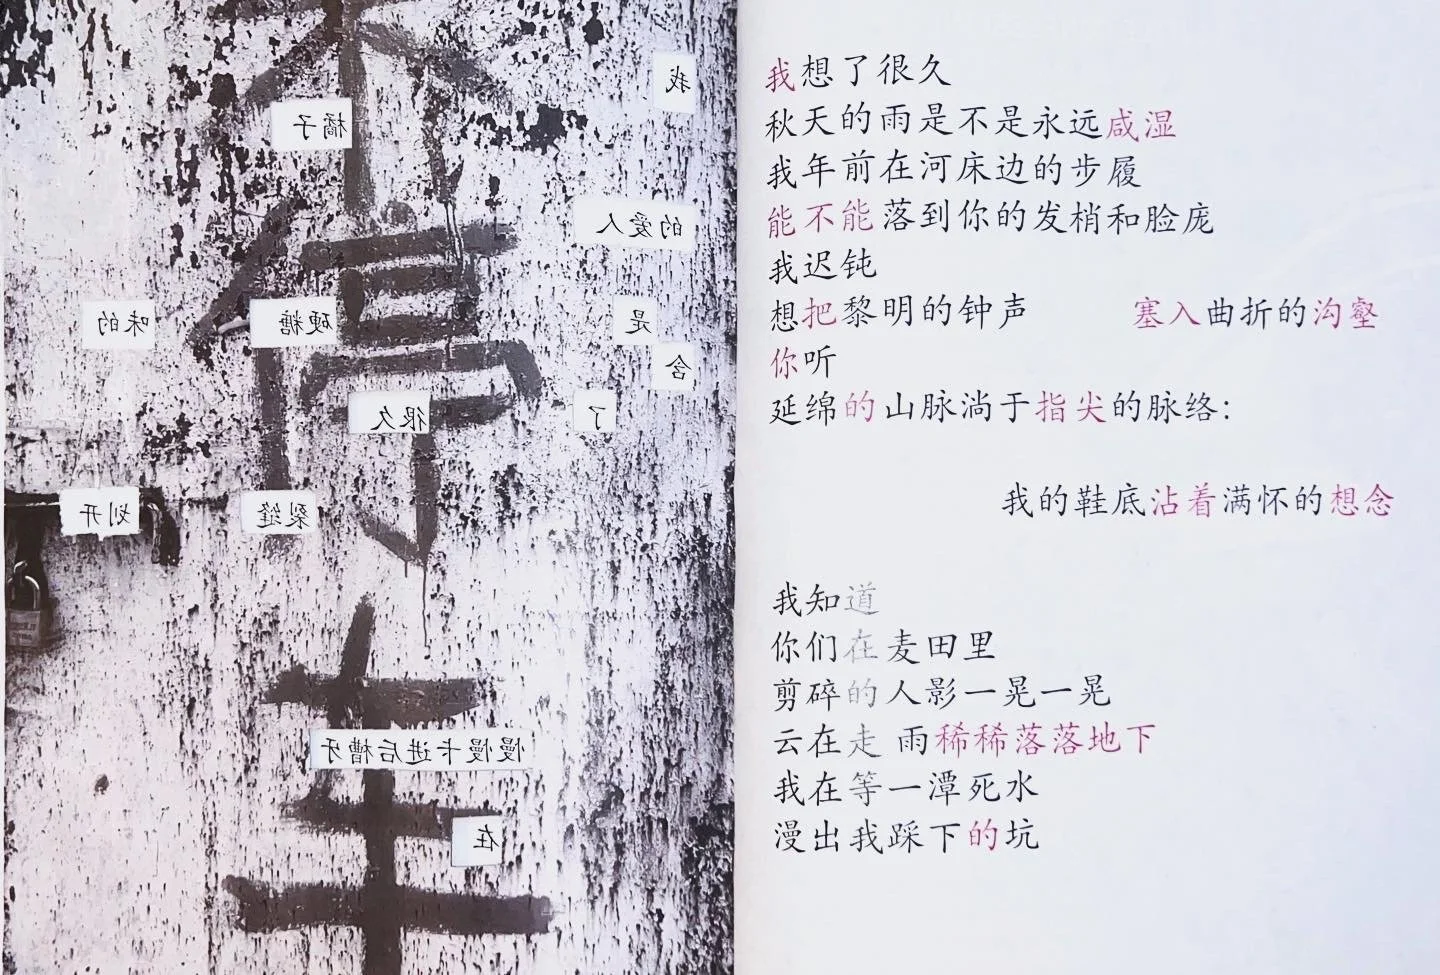 我
橘子
的爱人
是
硬糖
味的
含
了
很久
裂缝
划开
慢慢卡进后槽牙
在
停
我想了很久
秋天的雨是不是永远咸湿
我年前在河床边的步履
能不能落到你的发梢和脸庞
我迟钝
想把黎明的钟声 塞入曲折的沟壑
你听
延绵的山脉淌于指尖的脉络：
我的鞋底沾着满怀的想念
我知道
你们在麦田里
剪碎的人影一晃一晃
云在走 雨稀稀落落地下
我在等一潭死水
漫出我踩下的坑